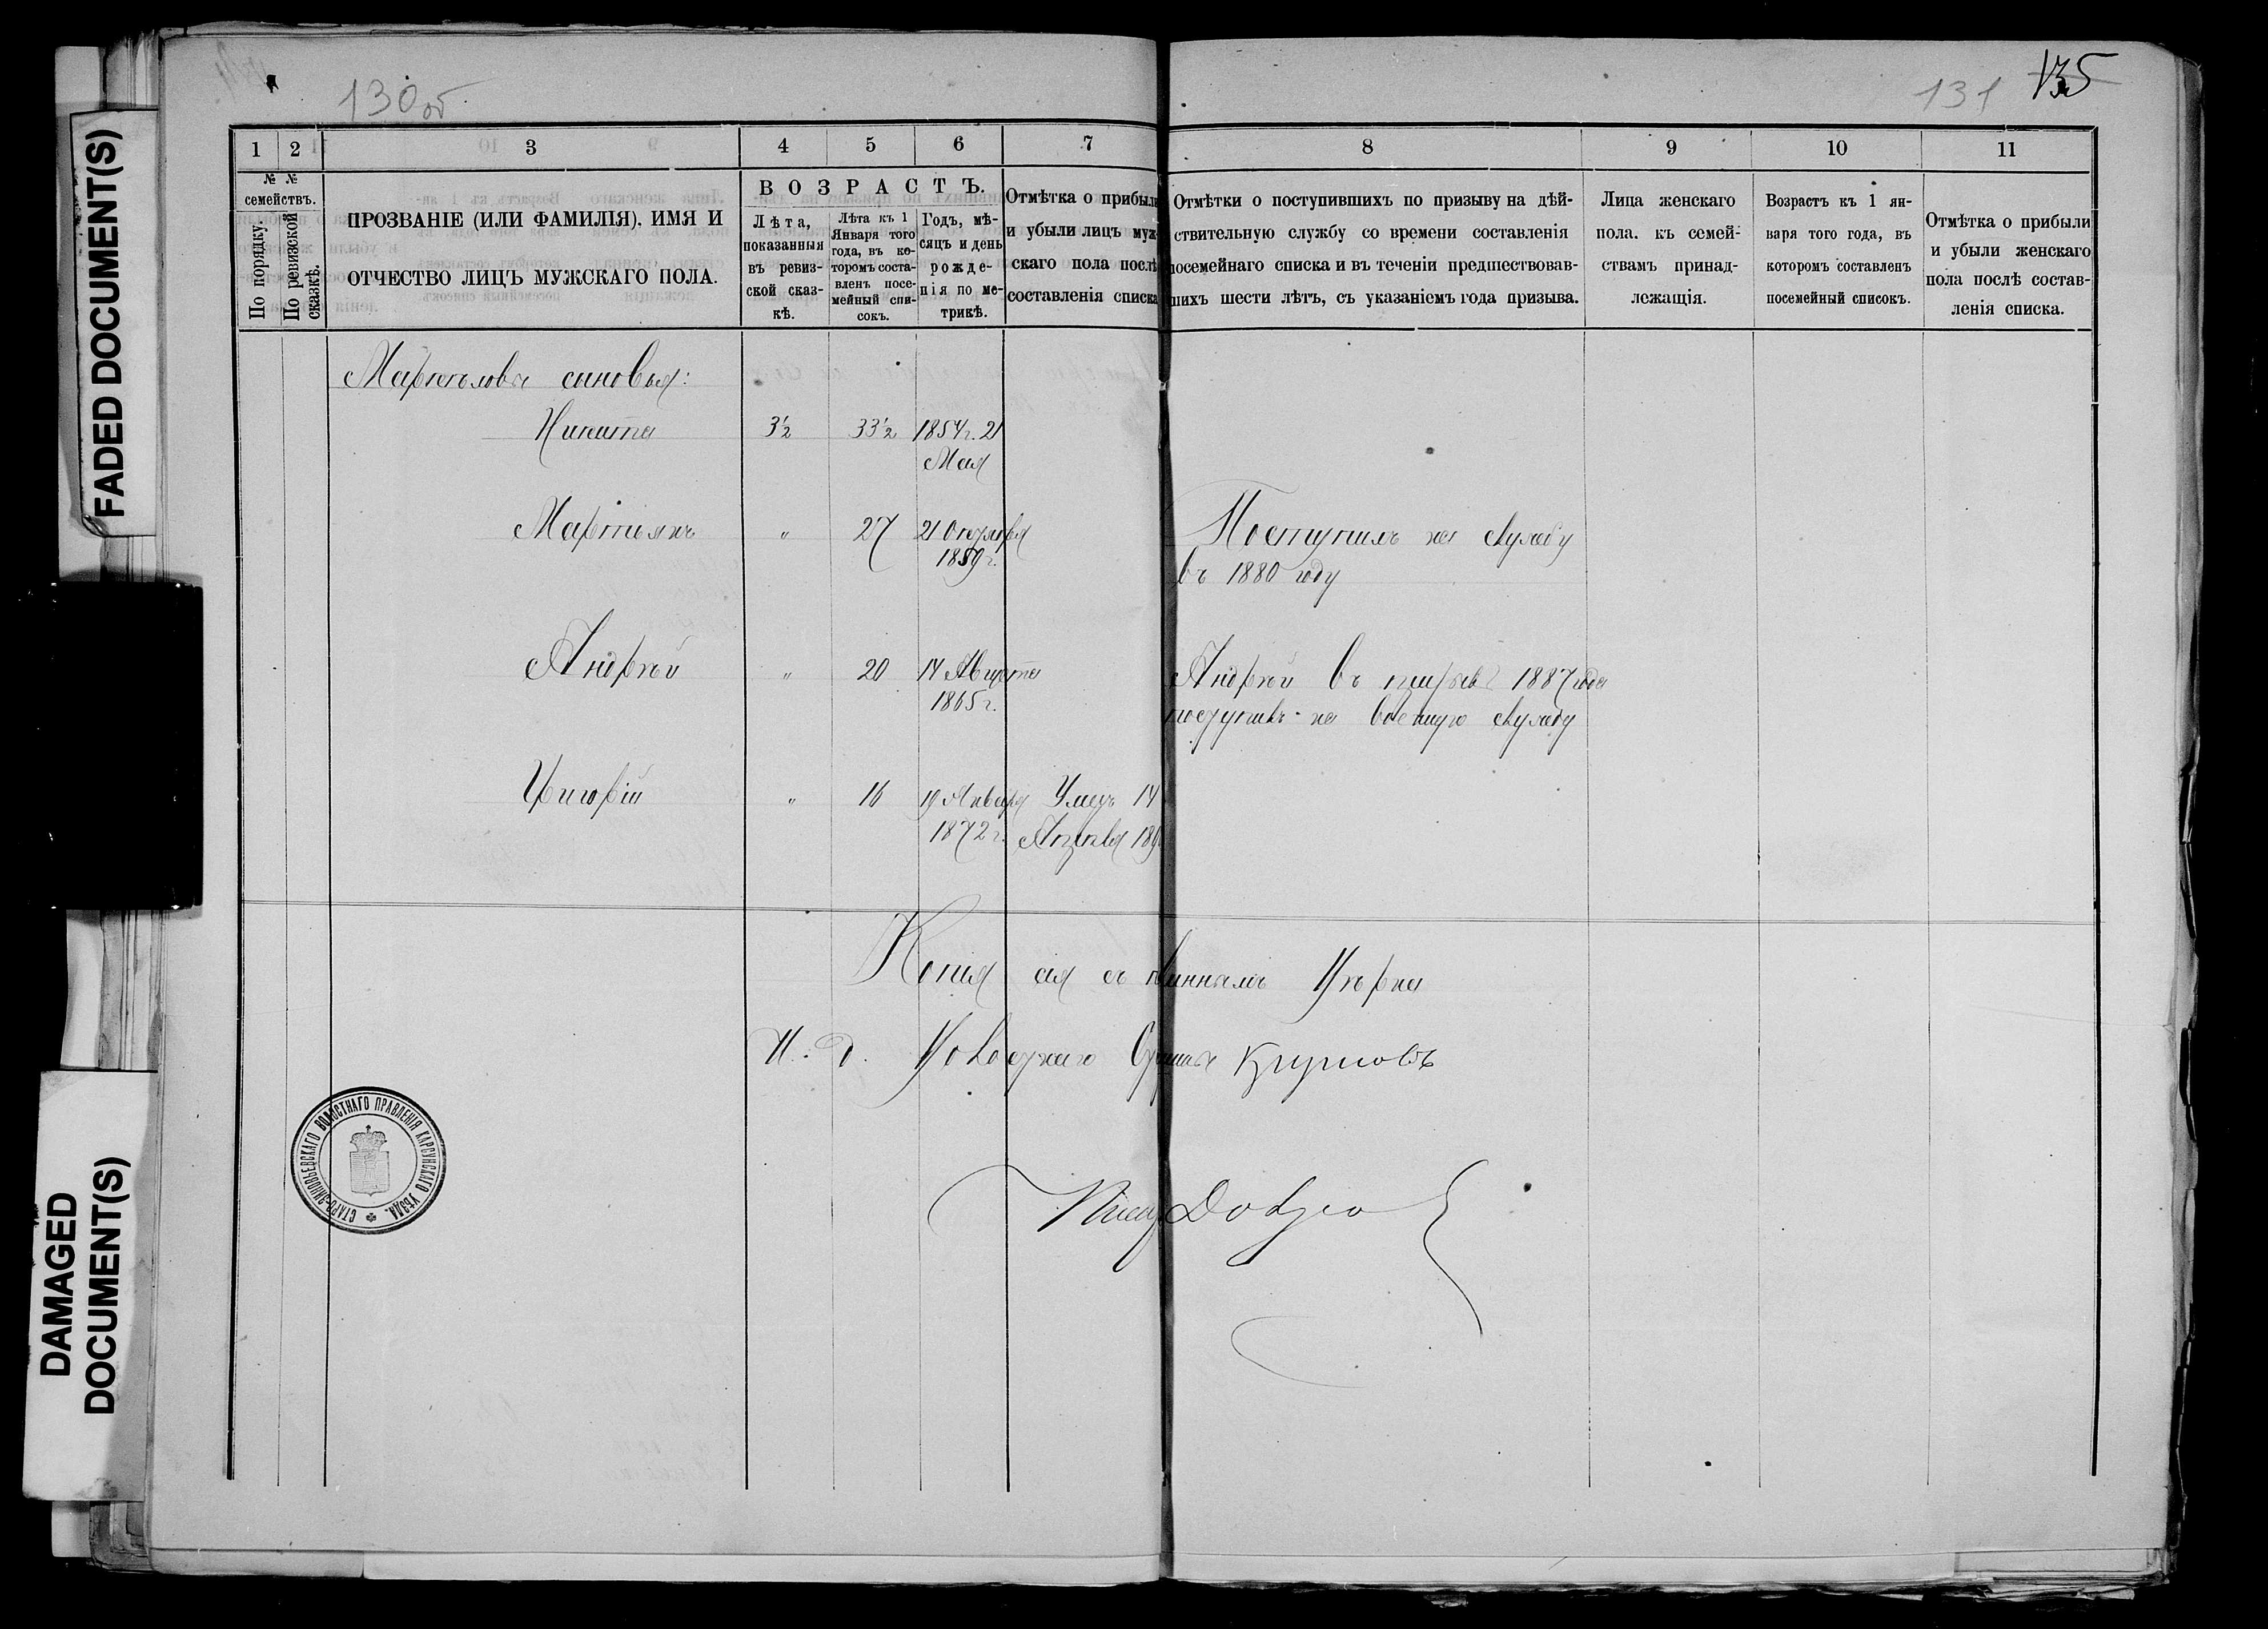 FADED DOCUMENT(S)
DAMAGED
DOCUMENT(S)
130об
131 135
1 2 3 4 5 6 7 8 9 10 11
№ №
семействъ.
По порядку.
По ревизской
сказкѣ.
ПРОЗВАНІЕ (ИЛИ ФАМИЛІЯ), ИМЯ И
ОТЧЕСТВО ЛИЦЪ МУЖСКАГО ПОЛА.
ВОЗРАСТЪ.
Лѣта,
показанныя
въ ревиз-
ской сказ-
кѣ.
Лѣта къ 1
Января того
года, въ ко-
торомъ соста-
вленъ посе-
мейный спи-
сокъ.
Годъ, мѣ-
сяцъ и день
рожде-
нія по ме-
трикѣ.
Отмѣтка о прибыли
и убыли лицъ муж-
скаго пола послѣ
составленія списка
Отмѣтки о поступившихъ по призыву на дѣй-
ствительную службу со времени составленія
посемейнаго списка и въ теченіи предшествовав-
шихъ шести лѣтъ, съ указаніемъ года призыва.
Лица женскаго
пола, къ семей-
ствамъ принад-
лежащія.
Возрастъ къ 1 ян-
варя того года, въ
которомъ составленъ
посемейный списокъ.
Отмѣтка о прибыли
и убыли женскаго
пола послѣ состав-
ленія списка.
сыновья:
Никита 3½ 33½ 1854г. 21
Мая
Мартіянъ " 27 21 Октября
1859 г.
Поступилъ на службу
въ 1880 году
Андрей " 20 14 Августа
1865 г.
Андрей въ 1887 года
на военную службу
Григорій " 16 19 Января
1872 г.
Умеръ 14
189
Копія сія съ подлиннымъ Вѣрна
И. д. Волостнаго Старшины
Писарь
СТАРО-ЗИНОВЬЕВСКАГО ВОЛОСТНАГО ПРАВЛЕНІЯ КАРСУНСКАГО УѢЗДА.